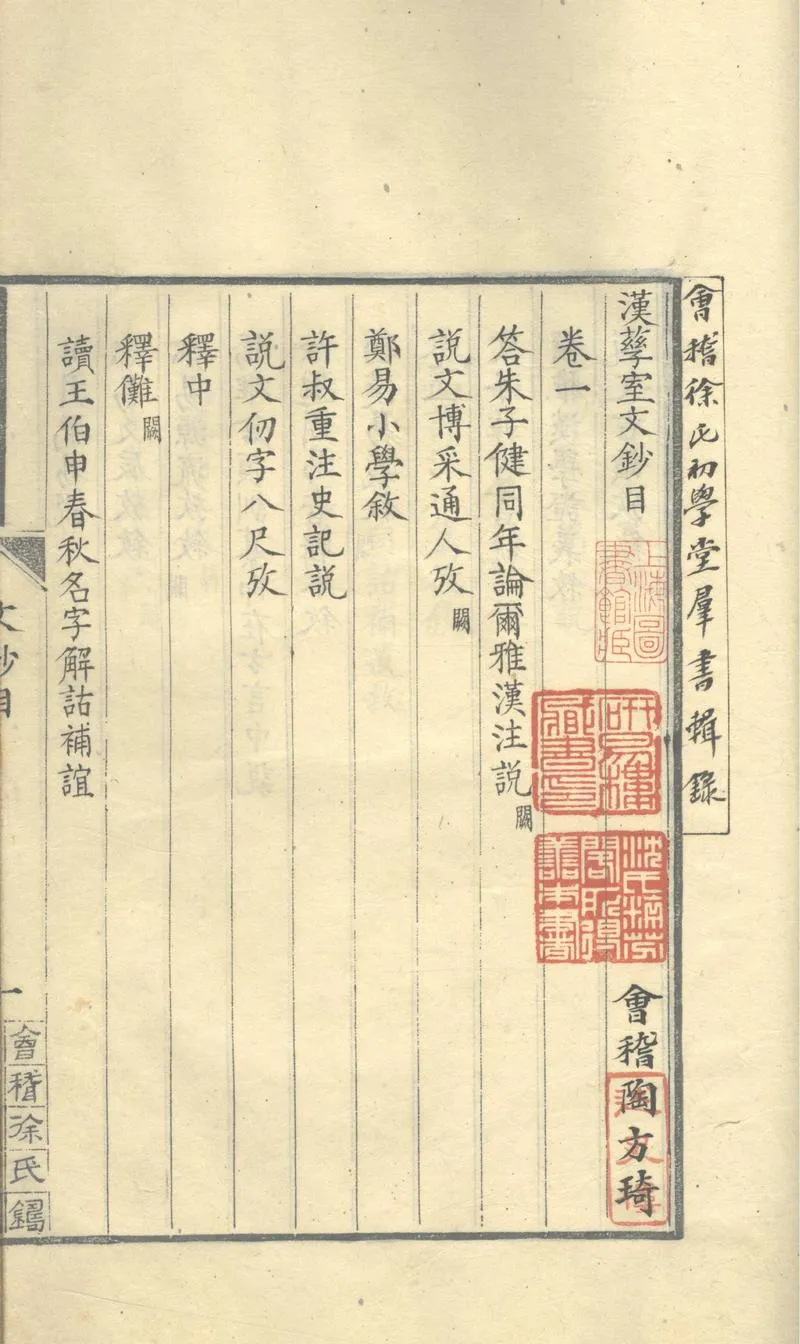 會稽徐氏初學堂羣書輯錄
漢孳室文鈔目
會稽陶方琦
卷一
答朱子健同年論爾雅漢注説闕
説文博采通人攷闕
鄭易小學敘
許叔重注史記説
説文仞字八尺攷
釋中
釋儺闕
讀王伯申春秋名字解詁補誼
文鈔目
一
會稽徐氏鑄
上海圖書館藏